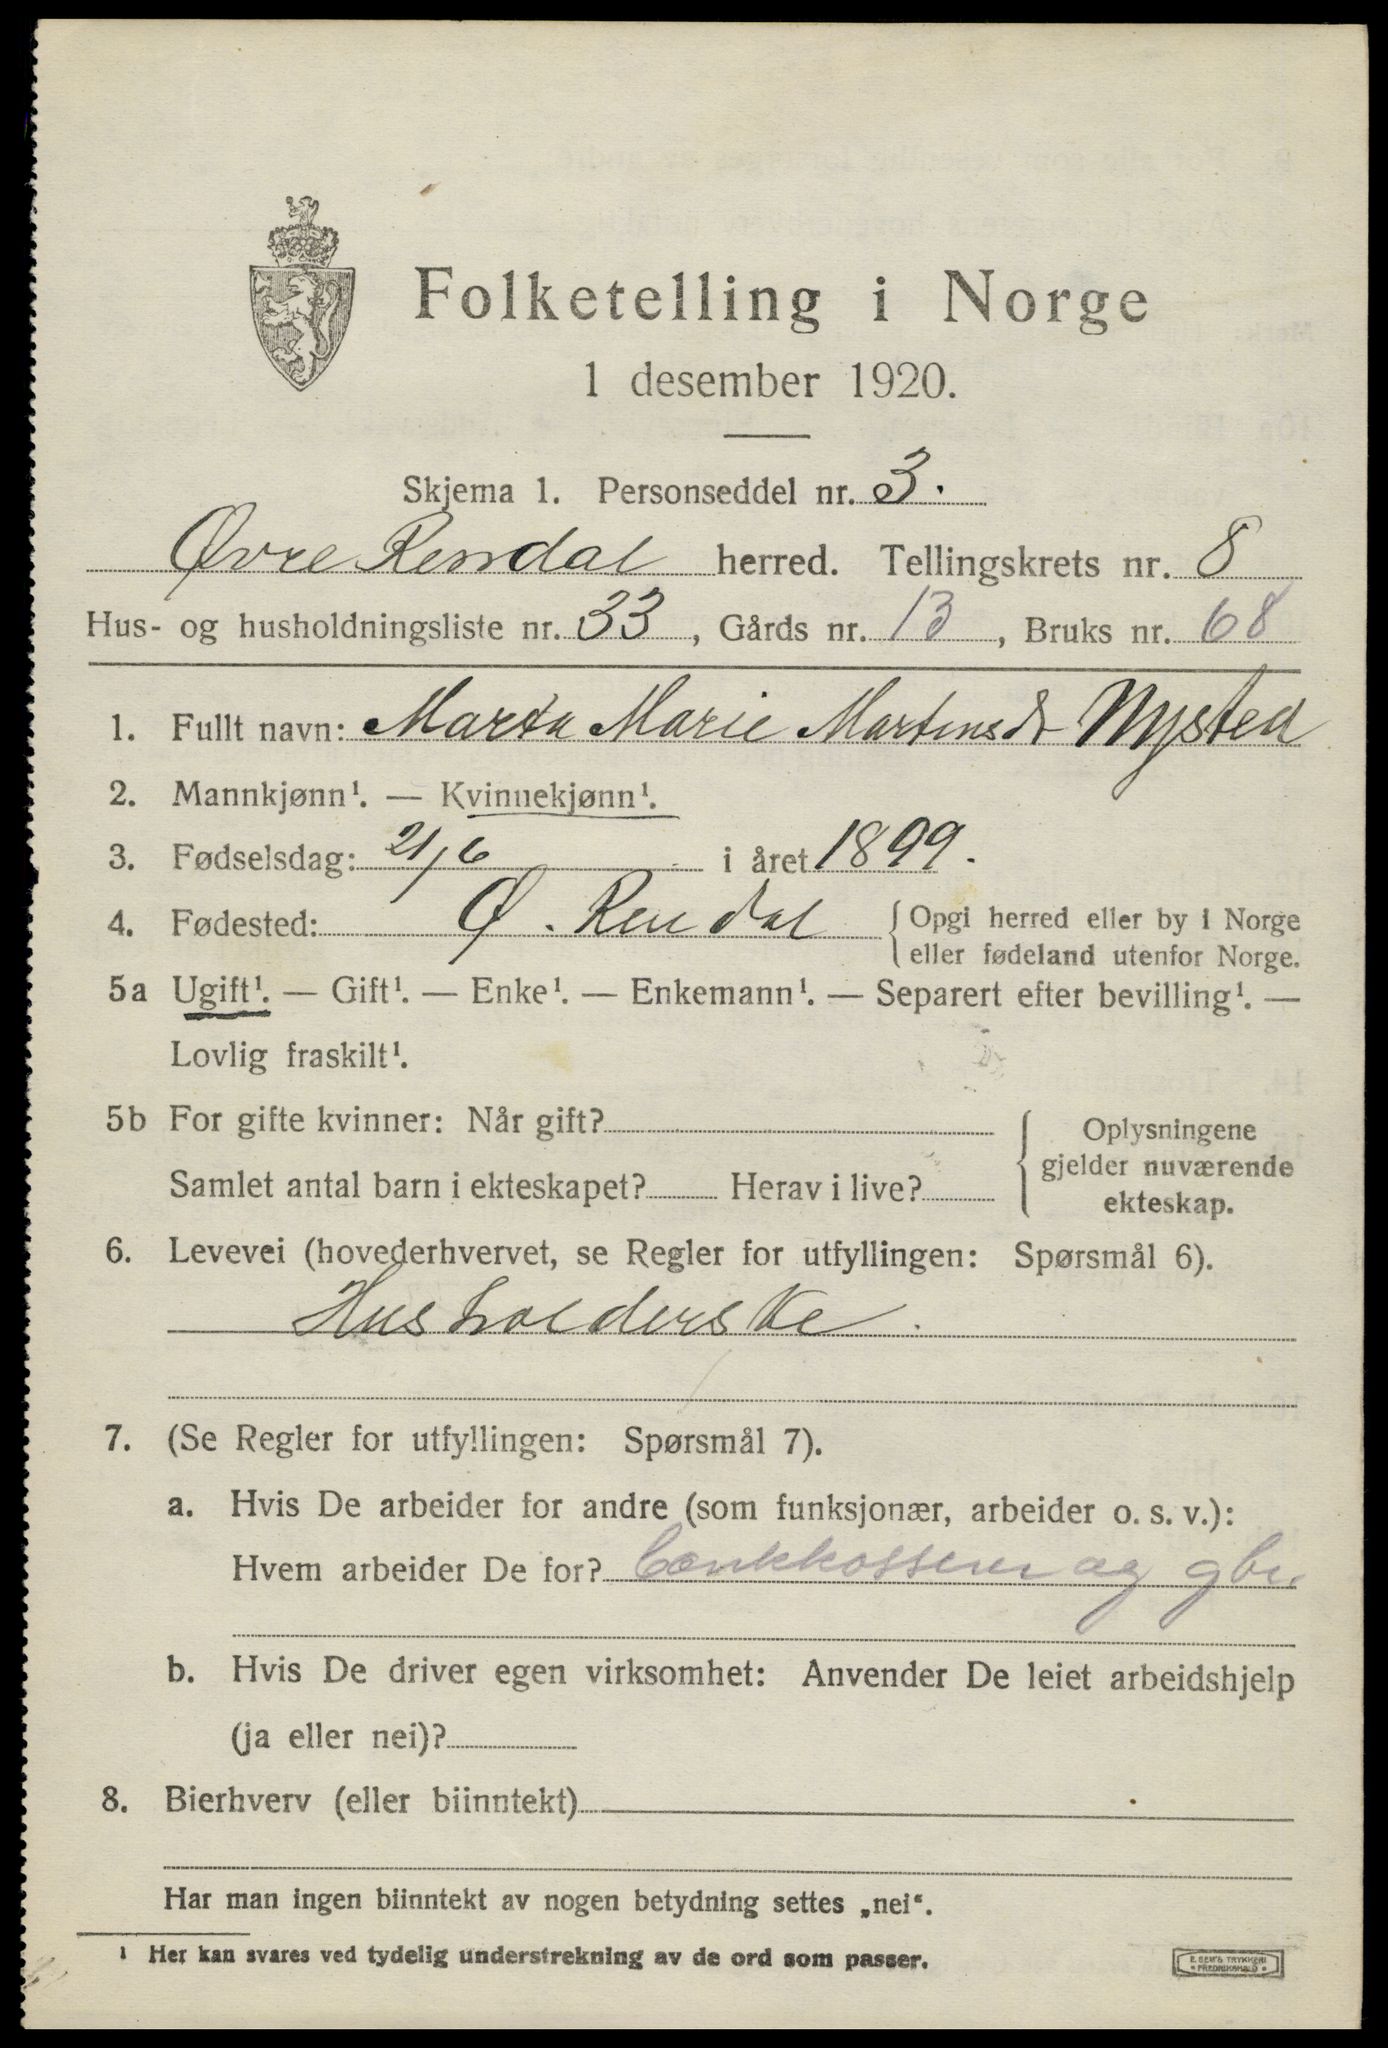 Folketelling i Norge
1 desember 1920.
Skjema 1. Personseddel nr. 3.
Øvre Rendal herred. Tellingskrets nr. 8
Hus- og husholdningsliste nr. 33, Gårds nr. 13, Bruks nr. 68
1. Fullt navn: Marta Marie Martinsdr Nysted
2. Mannkjønn¹. — Kvinnekjønn¹.
3. Fødselsdag: 21/6 i året 1899.
4. Fødested: Ø. Rendal { Opgi herred eller by i Norge
eller fødeland utenfor Norge.
5a Ugift¹. — Gift¹. — Enke¹. — Enkemann¹. — Separert efter bevilling¹. —
Lovlig fraskilt¹.
5b For gifte kvinner: Når gift?
Samlet antal barn i ekteskapet? Herav i live?
{ Oplysningene
gjelder nuværende
ekteskap.
6. Levevei (hovederhvervet, se Regler for utfyllingen: Spørsmål 6).
Husholderske.
7. (Se Regler for utfyllingen: Spørsmål 7).
a. Hvis De arbeider for andre (som funksjonær, arbeider o. s. v.):
Hvem arbeider De for? og gbr.
b. Hvis De driver egen virksomhet: Anvender De leiet arbeidshjelp
(ja eller nei)?
8. Bierhverv (eller biinntekt)
Har man ingen biinntekt av nogen betydning settes „nei“.
¹ Her kan svares ved tydelig understrekning av de ord som passer.
E. SEM'S TRYKKERI
• FREDRIKSHALD •